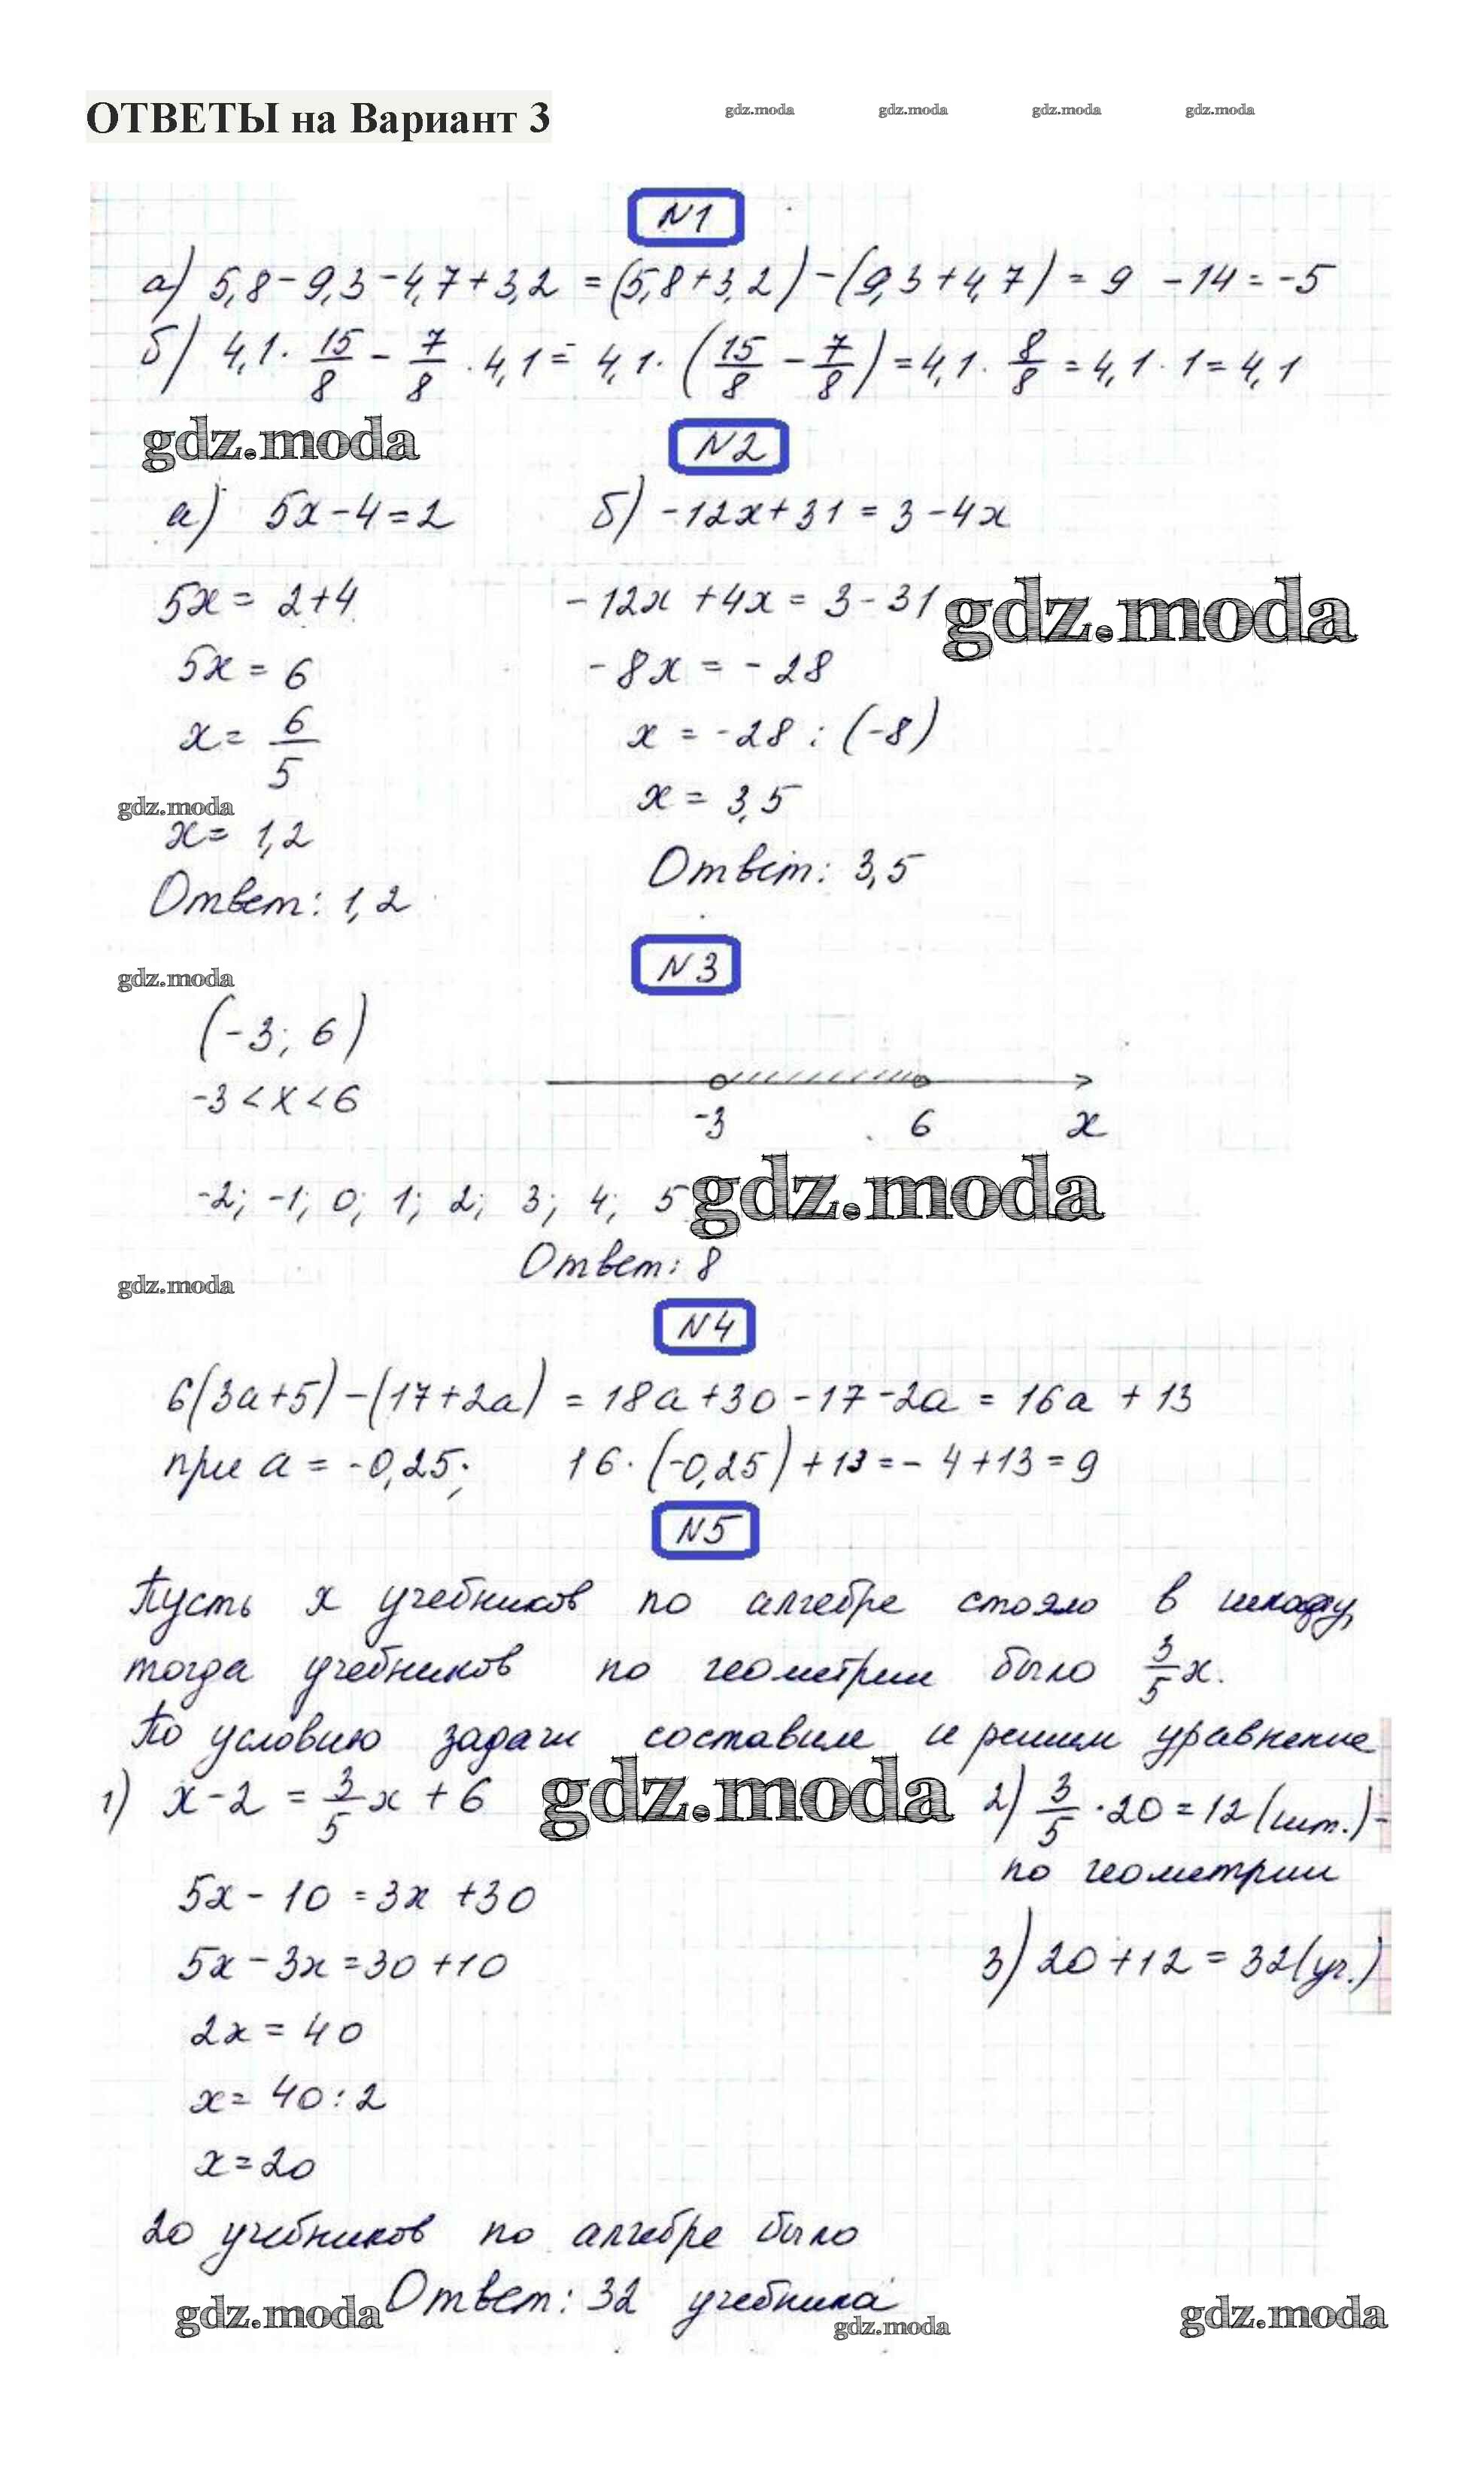 ОТВЕТЫ на Вариант 3
gdz.moda gdz.moda gdz.moda gdz.moda
N1
а) 5,8 - 9,3 - 4,7 + 3,2 = (5,8 + 3,2) - (9,3 + 4,7) = 9 - 14 = -5
б) 4,1 · 15/8 - 7/8 · 4,1 = 4,1 · (15/8 - 7/8) = 4,1 · 8/8 = 4,1 · 1 = 4,1
gdz.moda
N2
а) 5x - 4 = 2
5x = 2 + 4
5x = 6
x = 6/5
gdz.moda
x = 1,2
Ответ: 1,2
б) -12x + 31 = 3 - 4x
-12x + 4x = 3 - 31
gdz.moda
-8x = -28
x = -28 : (-8)
x = 3,5
Ответ: 3,5
N3
gdz.moda
(-3; 6)
-3 < x < 6
-3 6 x
-2; -1; 0; 1; 2; 3; 4; 5
gdz.moda
Ответ: 8
gdz.moda
N4
6(3a+5) - (17+2a) = 18a + 30 - 17 - 2a = 16a + 13
при a = -0,25; 16 · (-0,25) + 13 = -4 + 13 = 9
N5
Пусть x учебников по алгебре стояло в шкафу,
тогда учебников по геометрии было 3/5 x.
По условию задачи составим и решим уравнение
1) x - 2 = 3/5 x + 6
gdz.moda
5x - 10 = 3x + 30
5x - 3x = 30 + 10
2x = 40
x = 40 : 2
x = 20
2) 3/5 · 20 = 12 (шт.) -
по геометрии
3) 20 + 12 = 32 (уч.)
20 учебников по алгебре было
Ответ: 32 учебника
gdz.moda gdz.moda gdz.moda